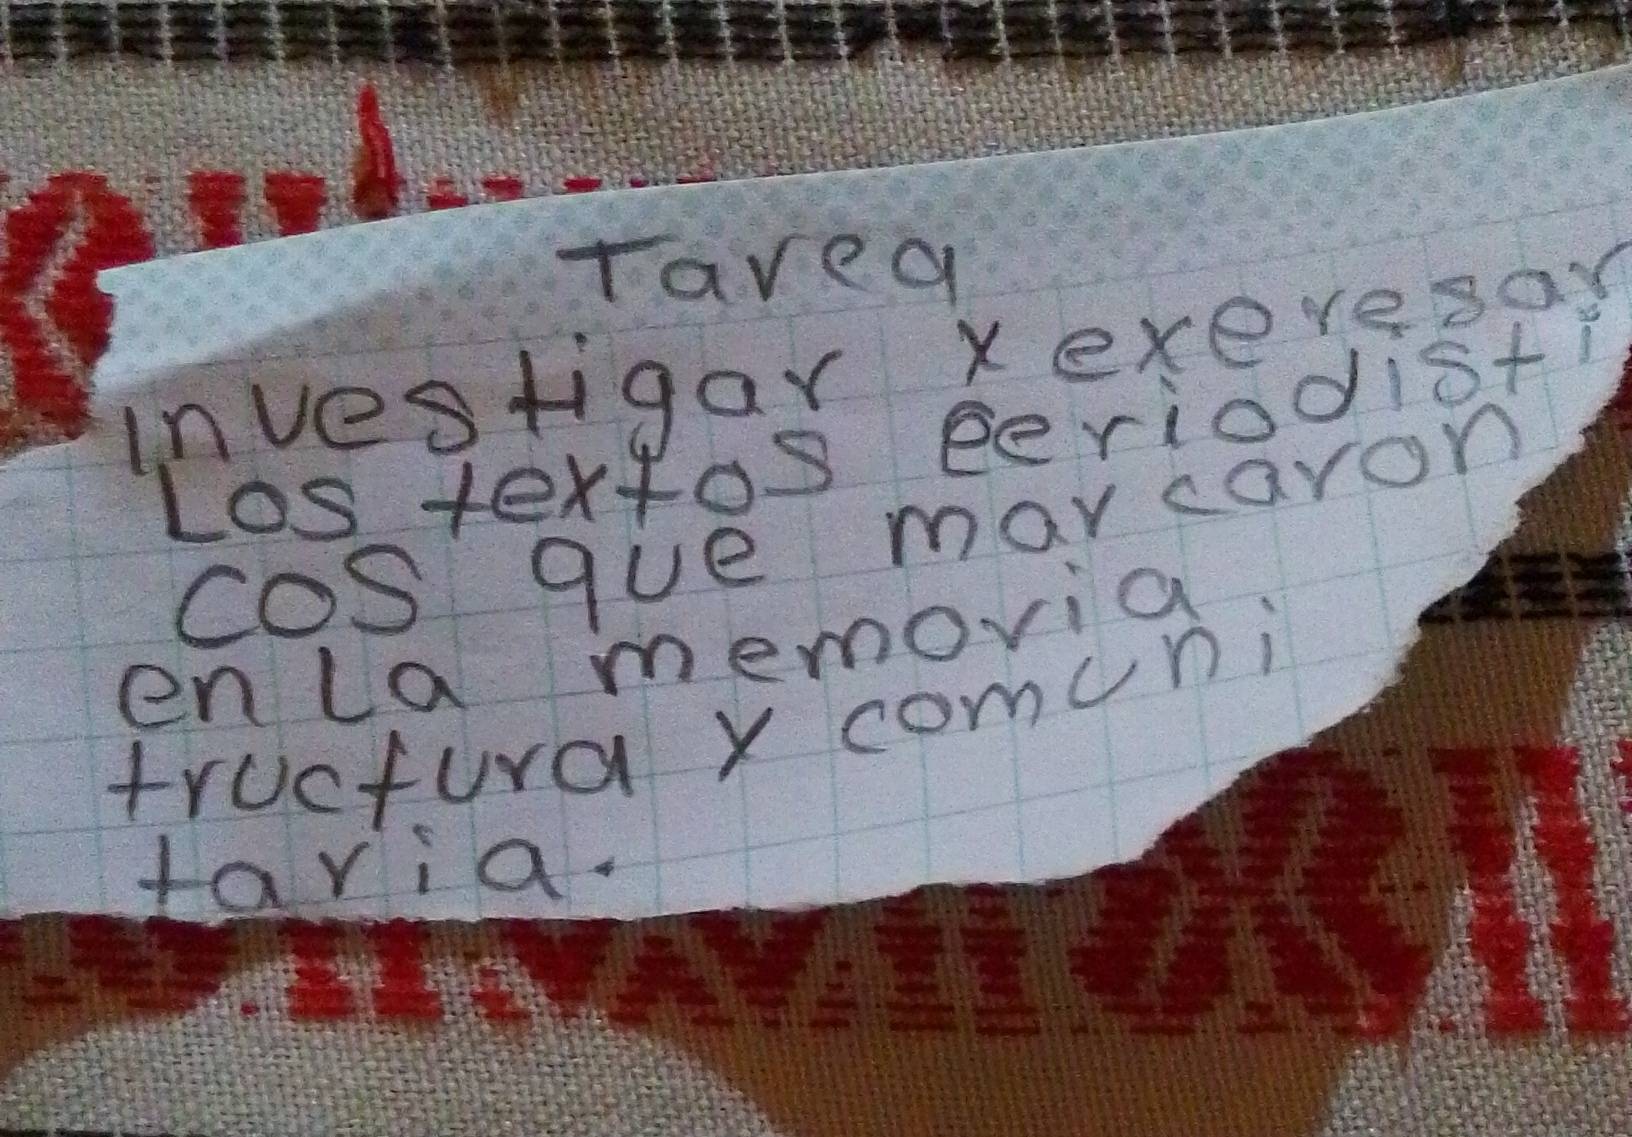 Tarea
Investigar y exeresar
Los textos eeriodisti
cos que marcaron
en la memoria
tructura y comuni
taria.